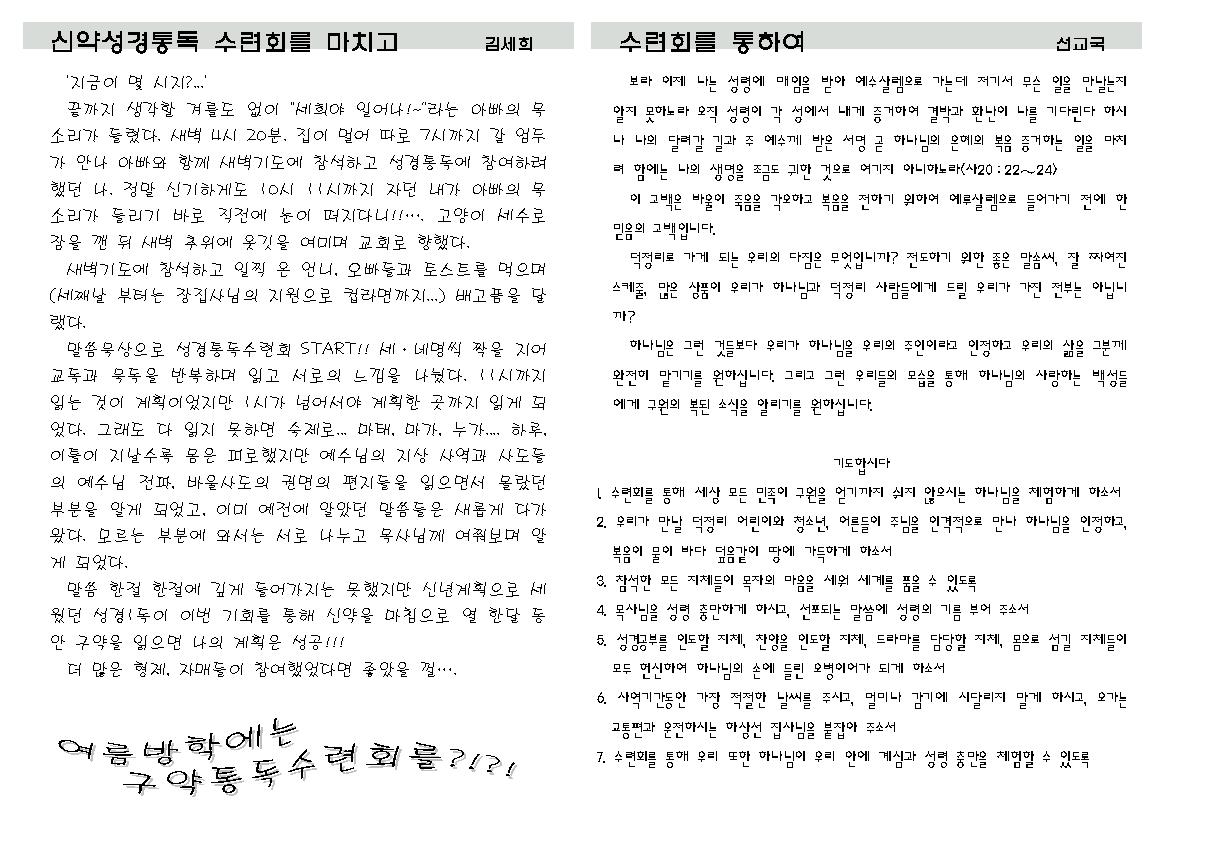 신약성경통독 수련회를 마치고 김세희
'지금이 몇 시지?...'
끝까지 생각할 겨를도 없이 "세희야 일어나!~"라는 아빠의 목
소리가 들렸다. 새벽 4시 20분. 집이 멀어 따로 7시까지 갈 엄두
가 안나 아빠와 함께 새벽기도에 참석하고 성경통독에 참여하려
했던 나. 정말 신기하게도 10시 11시까지 자던 내가 아빠의 목
소리가 들리기 바로 직전에 눈이 떠지다니!!…. 고양이 세수로
잠을 깬 뒤 새벽 추위에 옷깃을 여미며 교회로 향했다.
새벽기도에 참석하고 일찍 온 언니, 오빠들과 토스트를 먹으며
(세째날 부터는 장집사님의 지원으로 컵라면까지...) 배고픔을 달
랬다.
말씀묵상으로 성경통독수련회 START!! 세·네명씩 짝을 지어
교독과 묵독을 반복하며 읽고 서로의 느낌을 나눴다. 11시까지
읽는 것이 계획이었지만 1시가 넘어서야 계획한 곳까지 읽게 되
었다. 그래도 다 읽지 못하면 숙제로... 마태, 마가, 누가.... 하루,
이틀이 지날수록 몸은 피로했지만 예수님의 지상 사역과 사도들
의 예수님 전파, 바울사도의 권면의 편지들을 읽으면서 몰랐던
부분을 알게 되었고, 이미 예전에 알았던 말씀들은 새롭게 다가
왔다. 모르는 부분에 와서는 서로 나누고 목사님께 여쭤보며 알
게 되었다.
말씀 한절 한절에 깊게 들어가지는 못했지만 신년계획으로 세
웠던 성경1독이 이번 기회를 통해 신약을 마침으로 열 한달 동
안 구약을 읽으면 나의 계획은 성공!!!
더 많은 형제, 자매들이 참여했었다면 좋았을 껄….
여름방학에는
구약통독수련회를?!?!
수련회를 통하여 선교국
보라 이제 나는 성령에 매임을 받아 예수살렘으로 가는데 저기서 무슨 일을 만날는지
알지 못하노라 오직 성령이 각 성에서 내게 증거하여 결박과 환난이 나를 기다린다 하시
나 나의 달려갈 길과 주 예수께 받은 서명 곧 하나님의 은혜의 복음 증거하는 일을 마치
려 함에는 나의 생명을 조금도 귀한 것으로 여기지 아니하노라(사20 : 22～24)
이 고백은 바울이 죽음을 각오하고 복음을 전하기 위하여 예로살렘으로 들어가기 전에 한
믿음의 고백입니다.
덕정리로 가게 되는 우리의 다짐은 무엇입니까? 전도하기 위한 좋은 말솜씨, 잘 짜여진
스케줄, 많은 상품이 우리가 하나님과 덕정리 사람들에게 드릴 우리가 가진 전부는 아닙니
까?
하나님은 그런 것들보다 우리가 하나님을 우리의 주인이라고 인정하고 우리의 삶을 그분께
완전히 맡기기를 원하십니다. 그리고 그런 우리들의 모습을 통해 하나님의 사랑하는 백성들
에게 구원의 복된 소식을 알리기를 원하십니다.
기도합시다
1. 수련회를 통해 세상 모든 민족이 구원을 얻기까지 쉬지 않으시는 하나님을 체험하게 하소서
2. 우리가 만날 덕정리 어린이와 청소년, 어른들이 주님을 인격적으로 만나 하나님을 인정하고,
복음이 물이 바다 덮음같이 땅에 가득하게 하소서
3. 참석한 모든 지체들이 목자의 마음을 세워 세계를 품을 수 있도록
4. 목사님을 성령 충만하게 하시고, 선포되는 말씀에 성령의 기름 부어 주소서
5. 성경공부를 인도할 지체, 찬양을 인도할 지체, 드라마를 담당할 지체, 몸으로 섬길 지체들이
모두 헌신하여 하나님의 손에 들린 오병이어가 되게 하소서
6. 사역기간동안 가장 적절한 날씨를 주시고, 멀미나 감기에 시달리지 말게 하시고, 오가는
교통편과 운전하시는 하상선 집사님을 붙잡아 주소서
7. 수련회를 통해 우리 또한 하나님이 우리 안에 계심과 성령 충만을 체험할 수 있도록